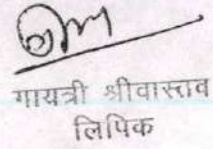 गायत्री श्रीवास्तव
लिपिक